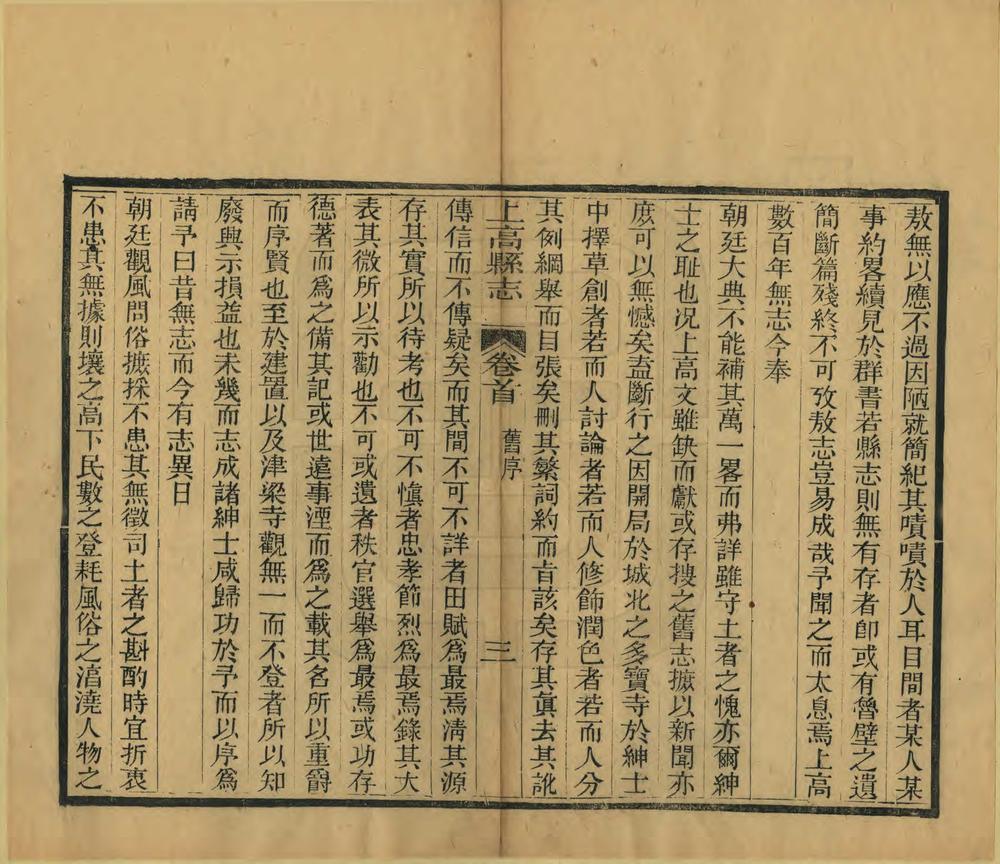 敖無以應不過因陋就簡紀其嘖嘖於人耳目間者某人某
事約畧續見於群書若縣志則無有存者卽或有魯壁之遺
簡斷篇殘終不可攷敖志豈易成哉予聞之而太息焉上高
數百年無志今奉
朝廷大典不能補其萬一畧而弗詳雖守土者之愧亦爾紳
士之耻也况上高文雖缺而獻或存搜之舊志摭以新聞亦
庶可以無憾矣葢斷行之因開局於城北之多寶寺於紳士
中擇草創者若而人討論者若而人修飾潤色者若而人分
其例綱舉而目張矣刪其繁詞約而旨該矣存其眞去其訛
上高縣志 卷首 舊序 三
傳信而不傳疑矣而其間不可不詳者田賦爲最焉淸其源
存其實所以待考也不可不愼者忠孝節烈爲最焉錄其大
表其微所以示勸也不可或遺者秩官選舉爲最焉或功存
德著而爲之備其記或世遠事湮而爲之載其名所以重爵
而序賢也至於建置以及津梁寺觀無一而不登者所以知
廢興示損益也未幾而志成諸紳士咸歸功於予而以序爲
請予曰昔無志而今有志異日
朝廷觀風問俗摭採不患其無徵司土者之斟酌時宜折衷
不患其無據則壤之高下民數之登耗風俗之漓澆人物之